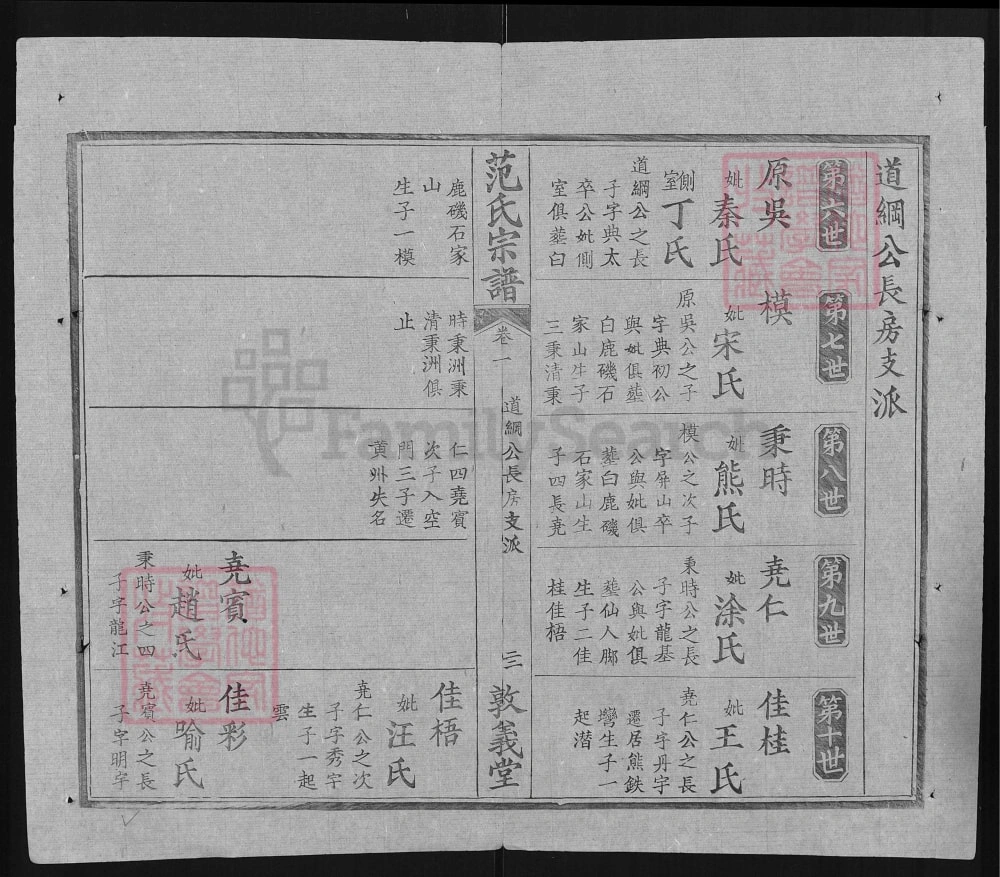 道綱公長房支派
第六世
原吳
妣秦氏
側室丁氏
道綱公之長
子字典太
卒公妣側
室俱塟白
第七世
模
妣宋氏
原吳公之子
字典初公
與妣俱塟
白鹿磯石
家山生子
三秉清秉
第八世
秉時
妣熊氏
模公之次子
字屏山卒
公與妣俱
塟白鹿磯
石家山生
子四長尭
第九世
尭仁
妣涂氏
秉時公之長
子字龍基
公與妣俱
塟仙人腳
生子二佳
桂佳梧
第十世
佳桂
妣王氏
尭仁公之長
子字丹宇
遷居熊鉄
灣生子一
起潜
范氏宗譜
卷一
道綱公長房支派
三
敦義堂
鹿磯石家
山
生子一模
時秉洲秉
清秉洲俱
止
仁四尭賓
次子入空
門三子遷
黄州失名
尭賓
妣趙氏
秉時公之四
子字龍江
佳梧
妣汪氏
尭仁公之次
子字秀宇
生子一起
雲
佳彩
妣喻氏
尭賓公之長
子字明宇
FamilySearch